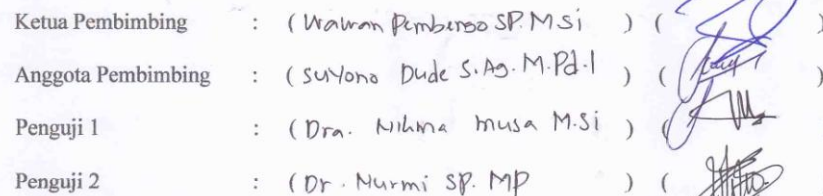 Ketua Pembimbing : ( Wawan Pembengo SP. MSi ) ( )
Anggota Pembimbing : ( Suyono Dude S.Ag. M.Pd.I ) ( )
Penguji 1 : ( Dra. Nikma Musa M.Si ) ( )
Penguji 2 : ( Dr. Nurmi SP. MP ) ( )